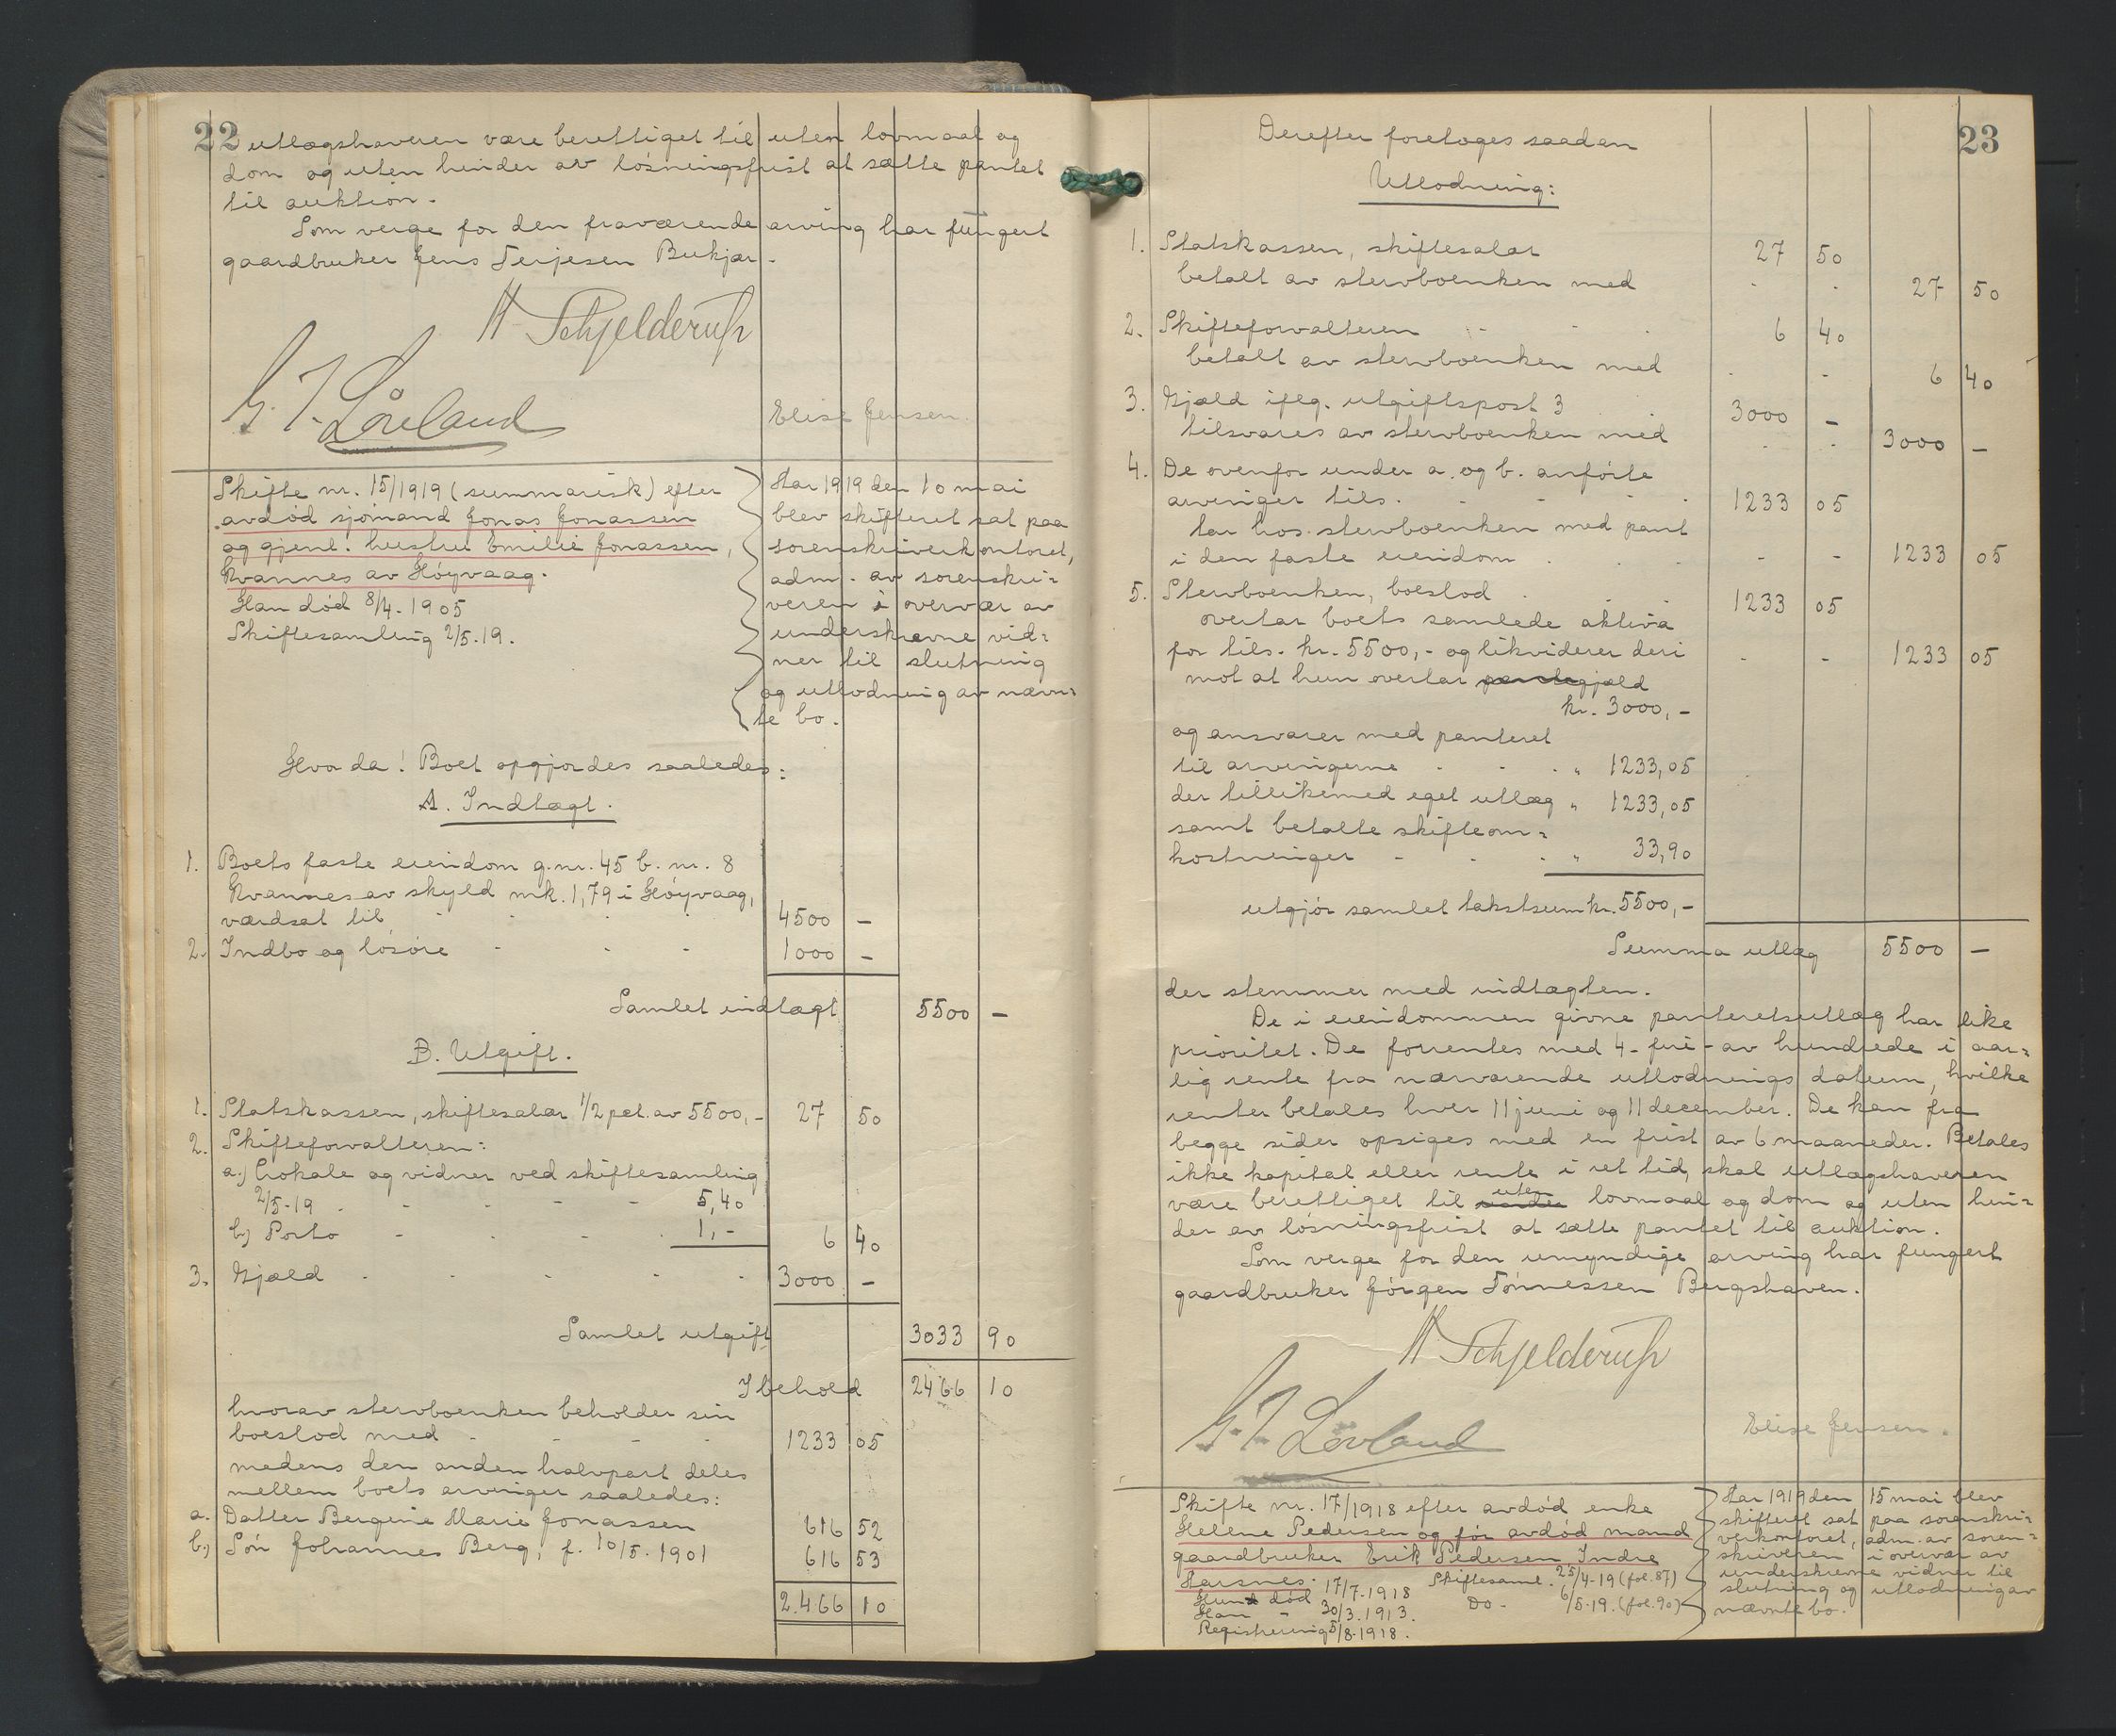 22
utlægshaveren være berettiget til uten lovmaal og
dom og uten hinder av løsningsfrist at sætte pantet
til auktion.
Som verge for den fraværende arving har fungert
gaardbruker Jens Terjesen Bukjær.
H Schjelderup
G. T. Løvland
Elise Jensen.
Skifte nr. 15/1919 (summarisk) efter
avdød sjømand Jonas Jonassen
og gjenl. hustru Emilie Jonassen,
Kvannes av Høyvaag.
Han død 8/4-1905
Skiftesamling 2/5-19.
Aar 1919 den 10 mai
blev skifteret sat paa
sorenskriverkontoret,
adm. av sorenskri=
veren i overvær av
underskrevne vid=
ner til slutning
og utlodning av nævn=
te bo.
Hvor da! Boet opgjordes saaledes:
A. Indtægt.
1. Boets faste eiendom g.nr. 45 b.nr. 8
Kvannes av skyld mk. 1,79 i Høyvaag,
værdsat til - - - 4500 -
2. Indbo og løsøre - - - 1000 -
Samlet indtægt 5500 -
B. Utgift.
1. Statskassen, skiftesalær 1/2 pct. av 5500,- 27 50
2. Skifteforvalteren:
a.) Lokale og vidner ved skiftesamling
2/5-19 - - - - 5,40
b) Porto - - - - 1,- 6 40
3. Gjæld - - - - - 3000 -
Samlet utgift 3033 90
I behold 2466 10
hvorav stervboenken beholder sin
boeslod med - - - 1233 05
medens den anden halvpart deles
mellem boets arvinger saaledes:
a. Datter Bergine Marie Jonassen 616 52
b) Søn Johannes Berg, f. 10/5-1901 616 53
2.466 10
23
Derefter foretoges saadan
Utlodning:
1. Statskassen, skiftesalær 27 50
betalt av stervboenken med - - 27 50
2. Skifteforvalteren - - - 6 40
betalt av stervboenken med - - 6 40
3. Gjæld ifølg. utgiftspost 3 3000 -
tilsvares av stervboenken med - - 3000 -
4. De ovenfor under a. og b. anførte
arvinger tils. - - - - 1233 05
tar hos stervboenken med pant
i den faste eiendom - - - - 1233 05
5. Stervboenken, boeslod - - 1233 05
overtar boets samlede aktiva
for tils. kr. 5500,- og likviderer deri - - 1233 05
mot at hun overtar pantegjæld
kr. 3000,-
og ansvarer med panteret
til arvingerne - - - " 1233,05
der tillikemed eget utlæg " 1233,05
samt betalte skifteom=
kostninger - - - " 33,90
utgjør samlet takstsum kr. 5500,-
Summa utlæg 5500 -
der stemmer med indtægten.
De i eiendommen givne panteretsutlæg har like
prioritet. De forrentes med 4-fire-av hundrede i aar=
lig rente fra nærværende utlodnings datum, hvilke
renter betales hver 11 juni og 11 december. De kan fra
begge sider opsiges med en frist av 6 maaneder. Betales
ikke kapital eller rente i ret tid, skal utlægshaveren
være berettiget til uten lovmaal og dom og uten hin=
der av løsningsfrist at sætte pantet til auktion.
Som verge for den umyndige arving har fungert
gaardbruker Jørgen Tønnessen Bergshaven.
H Schjelderup
G. T. Løvland
Elise Jensen.
Skifte nr. 17/1918 efter avdød enke
Helene Pedersen og før avdød mand
gaardbruker Erik Pedersen, Indre
Aarsnes.
Hun død 17/7-1918
Han - 30/3-1913.
Registrering 5/8-1918.
Skiftesaml. 25/4-19 (fol. 87)
Do - 6/5-19. (fol. 90)
Aar 1919 den 15 mai blev
skifteret sat paa sorenskri=
verkontoret, adm. av soren=
skriveren i overvær av
underskrevne vidner til
slutning og utlodning av
nævnte bo.